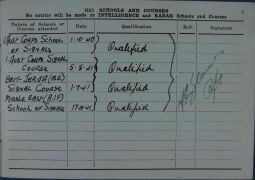 (15) SCHOOLS AND COURSES
No entries will be made re INTELLIGENCE and RADAR Schools and Courses
Nature of Schools or Courses attended Date Qualification R.O. Signature
1 Aust Corps School 1-10-40
of Signals Qualified
1 Aust Corps Signal
Course 5-5-41 Qualified
Beit-Jerja (ME)
Signal Course 1-7-41 Qualified
Middle East (A.I.F)
School of Signals 17-8-41 Qualified
Capt